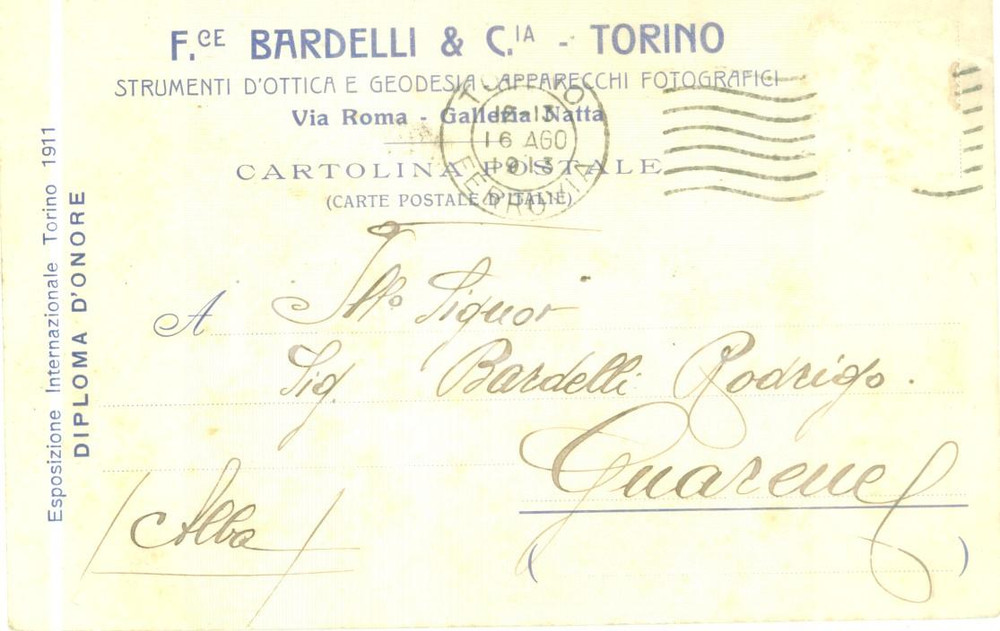 F.CE BARDELLI & C.IA - TORINO
STRUMENTI D'OTTICA E GEODESIA - APPARECCHI FOTOGRAFICI
Via Roma - Galleria Natta
CARTOLINA POSTALE
(CARTE POSTALE D'ITALIE)
TORINO
12-13
16 AGO
1913
FERROVIA
Esposizione Internazionale Torino 1911
DIPLOMA D'ONORE
A Ill.o Signor
Sig. Bardelli Rodrigo.
Guarene
(Alba)
( )